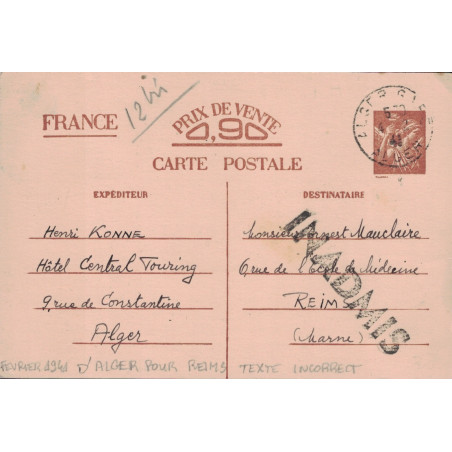 12hi
FRANCE
PRIX DE VENTE
0,90
CARTE POSTALE
ALGER GARE
EXPÉDITEUR
Henri KONNE
Hôtel Central Touring
9, rue de Constantine
Alger
DESTINATAIRE
Monsieur Ernest Mauclaire
6, rue de l'École de Médecine
REIMS
(Marne)
INADMIS
FEVRIER 1941 D'ALGER POUR REIMS
TEXTE INCORRECT